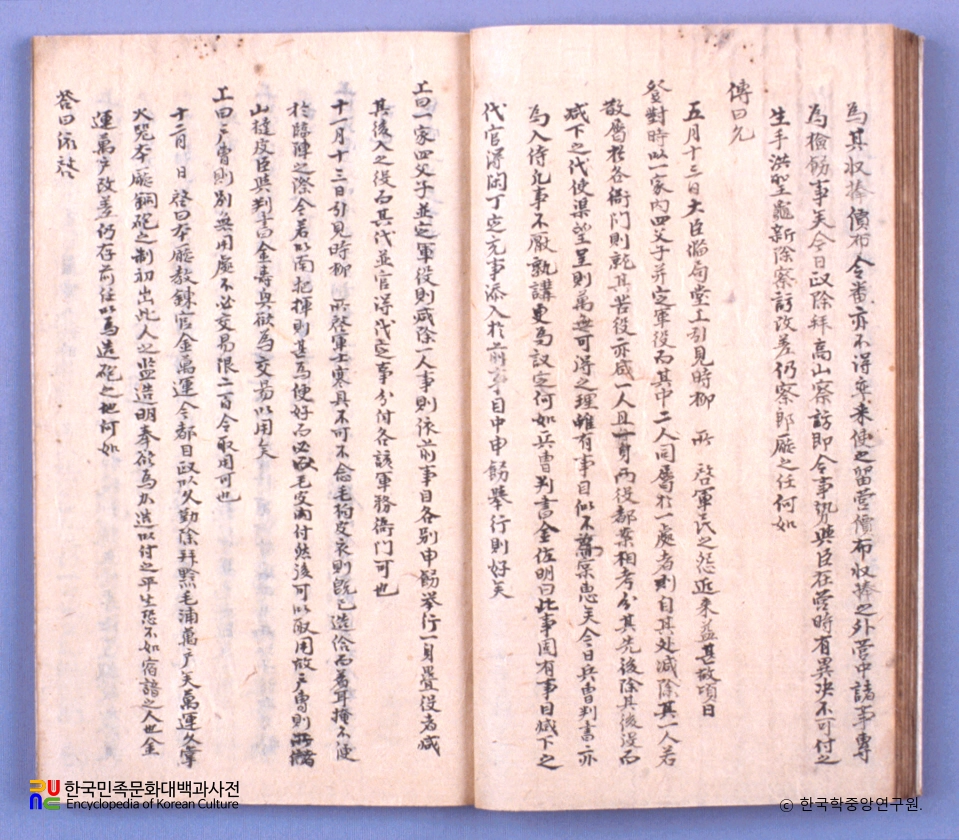 為其収捧價布令番亦不得奪來使之留營價布収捧之外營中諸事專
為檢飭事矣今日政除拜高山察訪即今事勢與臣在營時有異決不可付之
生手洪聖龜新除察訪改差仍察郎廳之任何如
傳曰允
五月十三日大臣備局堂上引見時柳 所 啓軍民之怨近來益甚故頃日
登對時以一家內四父子並定軍役而其中二人同屬於一處者則自其处減除其一人若
散屬於各衙門則就其苦役亦減一人且一身兩役都案相考分其先後除其後役而
減下之代使渠望呈則萬無可得之理雖有事目似不蒙惠矣今日兵曹判書亦
為入侍允事不厭熟講更為議定何如兵曹判書金佐明曰此事固有事目減下之
代官得閑丁定充事添入於前事目中申飭舉行則好矣
上曰一家四父子並定軍役則減除一人事則依前事目各別申飭举行一身疊役者減
其後入之役而其代並官得代定事分付各該軍務衙門可也
十一月十三日引見時柳 所啓軍士寒具不可不念毛狗皮衣則旣已造給而着耳掩不便
於臨陣之際令若以南把揮則甚為便好而必取毛皮內付然後可以取用故戶曹則所儲
山㺚皮臣與判書金壽興欲為交易以用矣
上曰戶曹則別無用處不必交易限二百令取用可也
十二月 日 啓曰本廳教鍊官金萬運今都目政以久勤除拜黔毛浦萬戶矣萬運久掌
火器本廳銅砲之制初出此人之監造明春欲為加造以付之平生恐不如宿諳之人也金
運萬戶改差仍存前任以為造砲之地何如
答曰依啓
한국민족문화대백과사전
Encyclopedia of Korean Culture
© 한국학중앙연구원.